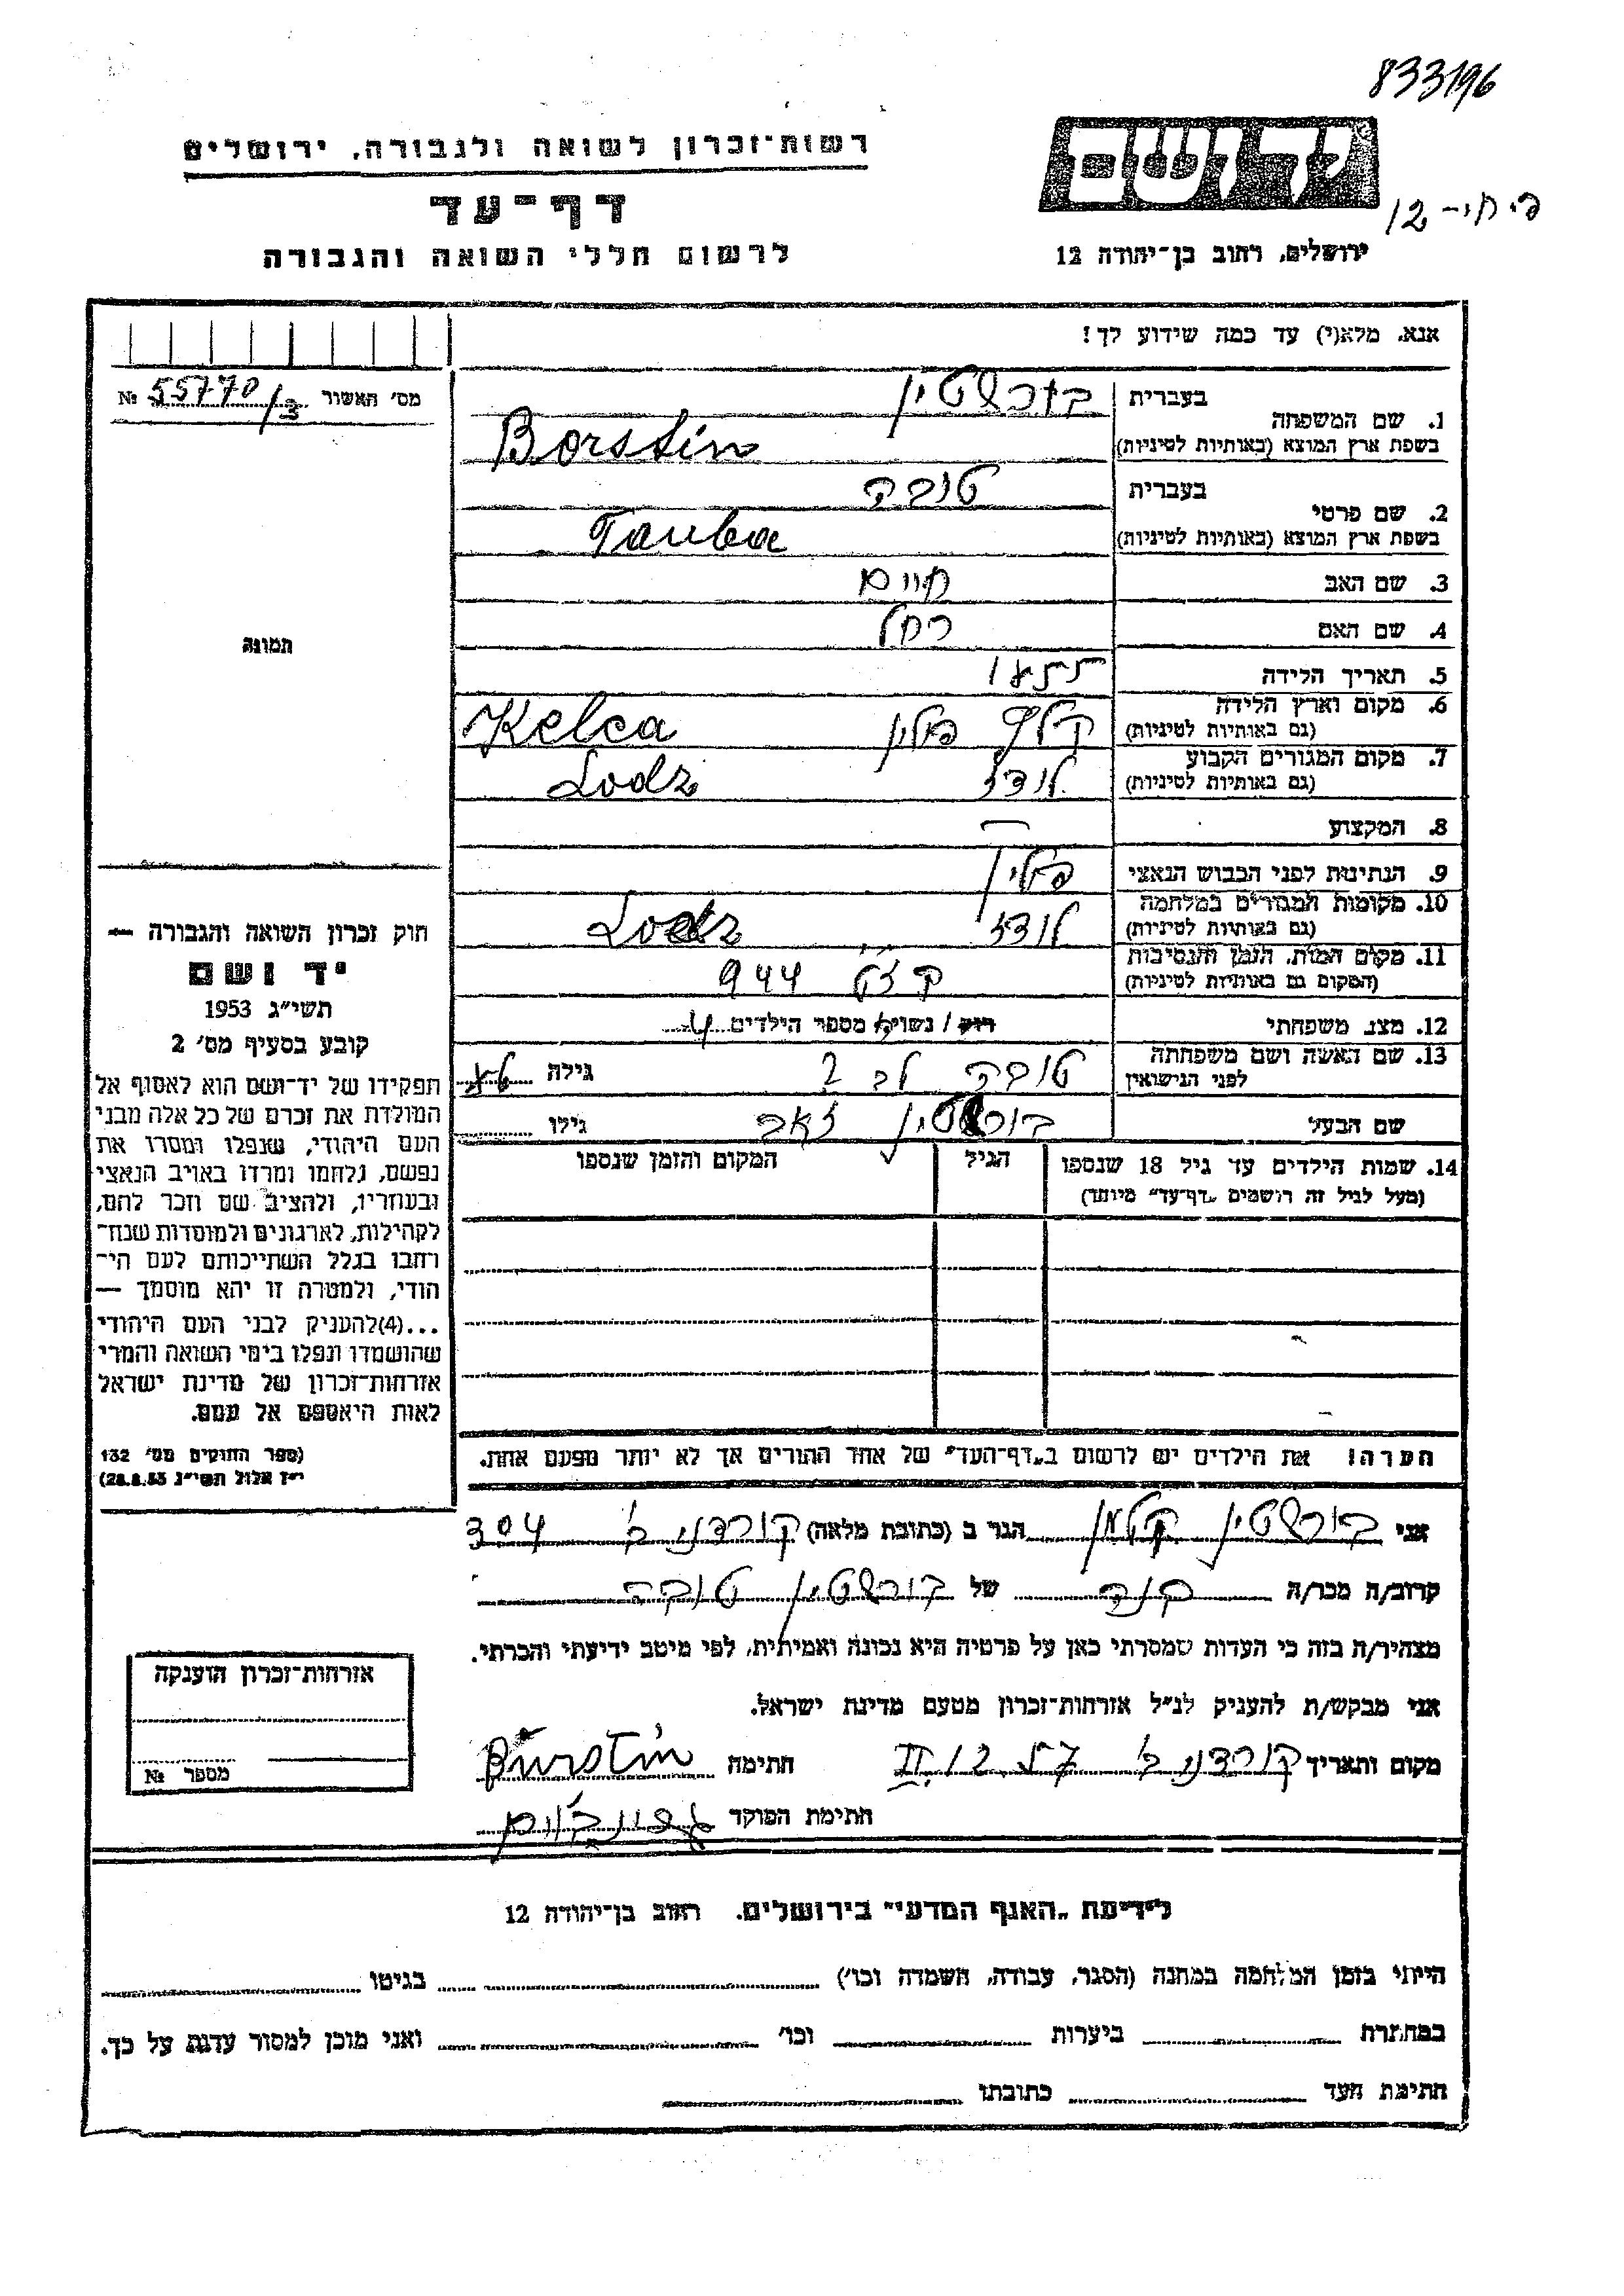 833196
רשות־זכרון לשואה ולגבורה, ירושלים
יד ושם
דף־עד
12
לרשום חללי השואה והגבורה
ירושלים, רחוב בן־יהודה 12
אנא, מלא(י) עד כמה שידוע לך!
מס׳ האשור 55770/3 №
בעברית בורשטין
1. שם המשפחה
בשפת ארץ המוצא (באותיות לטיניות) Borstin
בעברית טובה
2. שם פרטי
בשפת ארץ המוצא (באותיות לטיניות) Tauba
3. שם האב חיים
4. שם האם רחל
תמונה
5. תאריך הלידה
6. מקום וארץ הלידה
(גם באותיות לטיניות) פולין Kelca
7. מקום המגורים הקבוע
(גם באותיות לטיניות) לודז Lodz
8. המקצוע —
9. הנתינות לפני הכבוש הנאצי פולין
10. מקומות המגורים במלחמה
(גם באותיות לטיניות) לודז Lodz
11. מקום המות, הזמן והנסיבות
(המקום גם באותיות לטיניות) 944
12. מצב משפחתי רווק / נשוי/אה מספר הילדים 4
13. שם האשה ושם משפחתה
לפני הנישואין טובה לב ? גילה
שם הבעל בורשטין זאב גילו
14. שמות הילדים עד גיל 18 שנספו
(מעל לגיל זה רושמים „דף־עד״ מיוחד)
הגיל
המקום והזמן שנספו
חוק זכרון השואה והגבורה —
יד ושם
תשי״ג 1953
קובע בסעיף מס׳ 2
תפקידו של יד־ושם הוא לאסוף אל
המולדת את זכרם של כל אלה מבני
העם היהודי, שנפלו ומסרו את
נפשם, נלחמו ומרדו באויב הנאצי
ובעוזריו, ולהציב שם וזכר להם,
לקהילות, לארגונים ולמוסדות שנח־
רבו בגלל השתייכותם לעם הי־
הודי, ולמטרה זו יהא מוסמך —
...(4) להעניק לבני העם היהודי
שהושמדו ונפלו בימי השואה והמרי
אזרחות־זכרון של מדינת ישראל
לאות היאספם אל עמם.
(ספר החוקים מס׳ 132
י״ז אלול תשי״ג 28.8.53)
הערה! את הילדים יש לרשום ב„דף־העד״ של אחד ההורים אך לא יותר מפעם אחת.
אני בורשטין קלמן הגר ב (כתובת מלאה) קורדני ב׳ 304
קרוב/ה מכר/ה בנה של בורשטין טובה
מצהיר/ה בזה כי העדות שמסרתי כאן על פרטיה היא נכונה ואמיתית, לפי מיטב ידיעתי והכרתי.
אני מבקש/ת להעניק לנ״ל אזרחות־זכרון מטעם מדינת ישראל.
מקום ותאריך קורדני ב׳ 12.II.57 חתימה Burstin
חתימת הפוקד
אזרחות־זכרון הוענקה
מספר №
לידיעת „האגף המדעי״ בירושלים, רחוב בן־יהודה 12
הייתי בזמן המלחמה במחנה (הסגר, עבודה, השמדה וכו׳) בגיטו
במחתרת ביערות וכו׳ ואני מוכן למסור עדות על כך.
חתימת העד כתובתו